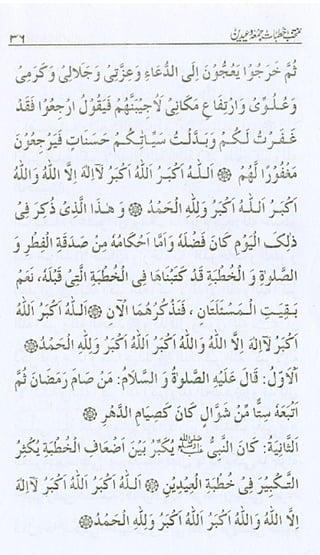 منتخب خطبات جمعہ و عیدین ۳۶
ثُمَّ خَرَجُوْا يَعُجُّوْنَ اِلَى الدُّعَاءِ وَعِزَّتِىْ وَجَلَالِىْ وَكَرَمِىْ
وَعُلُوِّىْ وَارْتِفَاعِ مَكَانِىْ لَاُجِيْبَنَّهُمْ فَيَقُوْلُ ارْجِعُوْا فَقَدْ
غَفَرْتُ لَكُمْ وَبَدَّلْتُ سَيِّاٰتِكُمْ حَسَنَاتٍ فَيَرْجِعُوْنَ
مَغْفُوْرًا لَّهُمْ ۞ اَللّٰهُ اَكْبَرُ اَللّٰهُ اَكْبَرُ لَآاِلٰهَ اِلَّا اللّٰهُ وَاللّٰهُ
اَكْبَرُ اَللّٰهُ اَكْبَرُ وَلِلّٰهِ الْحَمْدُ ۞ وَهٰذَا الَّذِىْ ذُكِرَ فِىْ
ذٰلِكَ الْيَوْمِ كَانَ فَضْلُهٗ وَاَمَّا اَحْكَامُهٗ مِنْ صَدَقَةِ الْفِطْرِ وَ
الصَّلٰوةِ وَ الْخُطْبَةِ قَدْ كَتَبْنَاهَا فِى الْخُطْبَةِ الَّتِىْ قَبْلَهٗ، نَعَمْ
بَقِيَتِ الْمَسْئَلَتَانِ ، فَنَذْكُرُهُمَا الْاٰنَ ۞ اَللّٰهُ اَكْبَرُ اَللّٰهُ
اَكْبَرُ لَآاِلٰهَ اِلَّا اللّٰهُ وَاللّٰهُ اَكْبَرُ اَللّٰهُ اَكْبَرُ وَلِلّٰهِ الْحَمْدُ ۞
اَلْاَوَّلُ: قَالَ عَلَيْهِ الصَّلٰوةُ وَ السَّلَامُ: مَنْ صَامَ رَمَضَانَ ثُمَّ
اَتْبَعَهٗ سِتًّا مِّنْ شَوَّالٍ كَانَ كَصِيَامِ الدَّهْرِ ۞
اَلثَّانِيَةُ: كَانَ النَّبِىُّ ﷺ يُكَبِّرُ بَيْنَ اَضْعَافِ الْخُطْبَةِ يُكْثِرُ
التَّكْبِيْرَ فِىْ خُطْبَةِ الْعِيْدَيْنِ ۞ اَللّٰهُ اَكْبَرُ اَللّٰهُ اَكْبَرُ لَآاِلٰهَ
اِلَّا اللّٰهُ وَاللّٰهُ اَكْبَرُ اَللّٰهُ اَكْبَرُ وَلِلّٰهِ الْحَمْدُ ۞